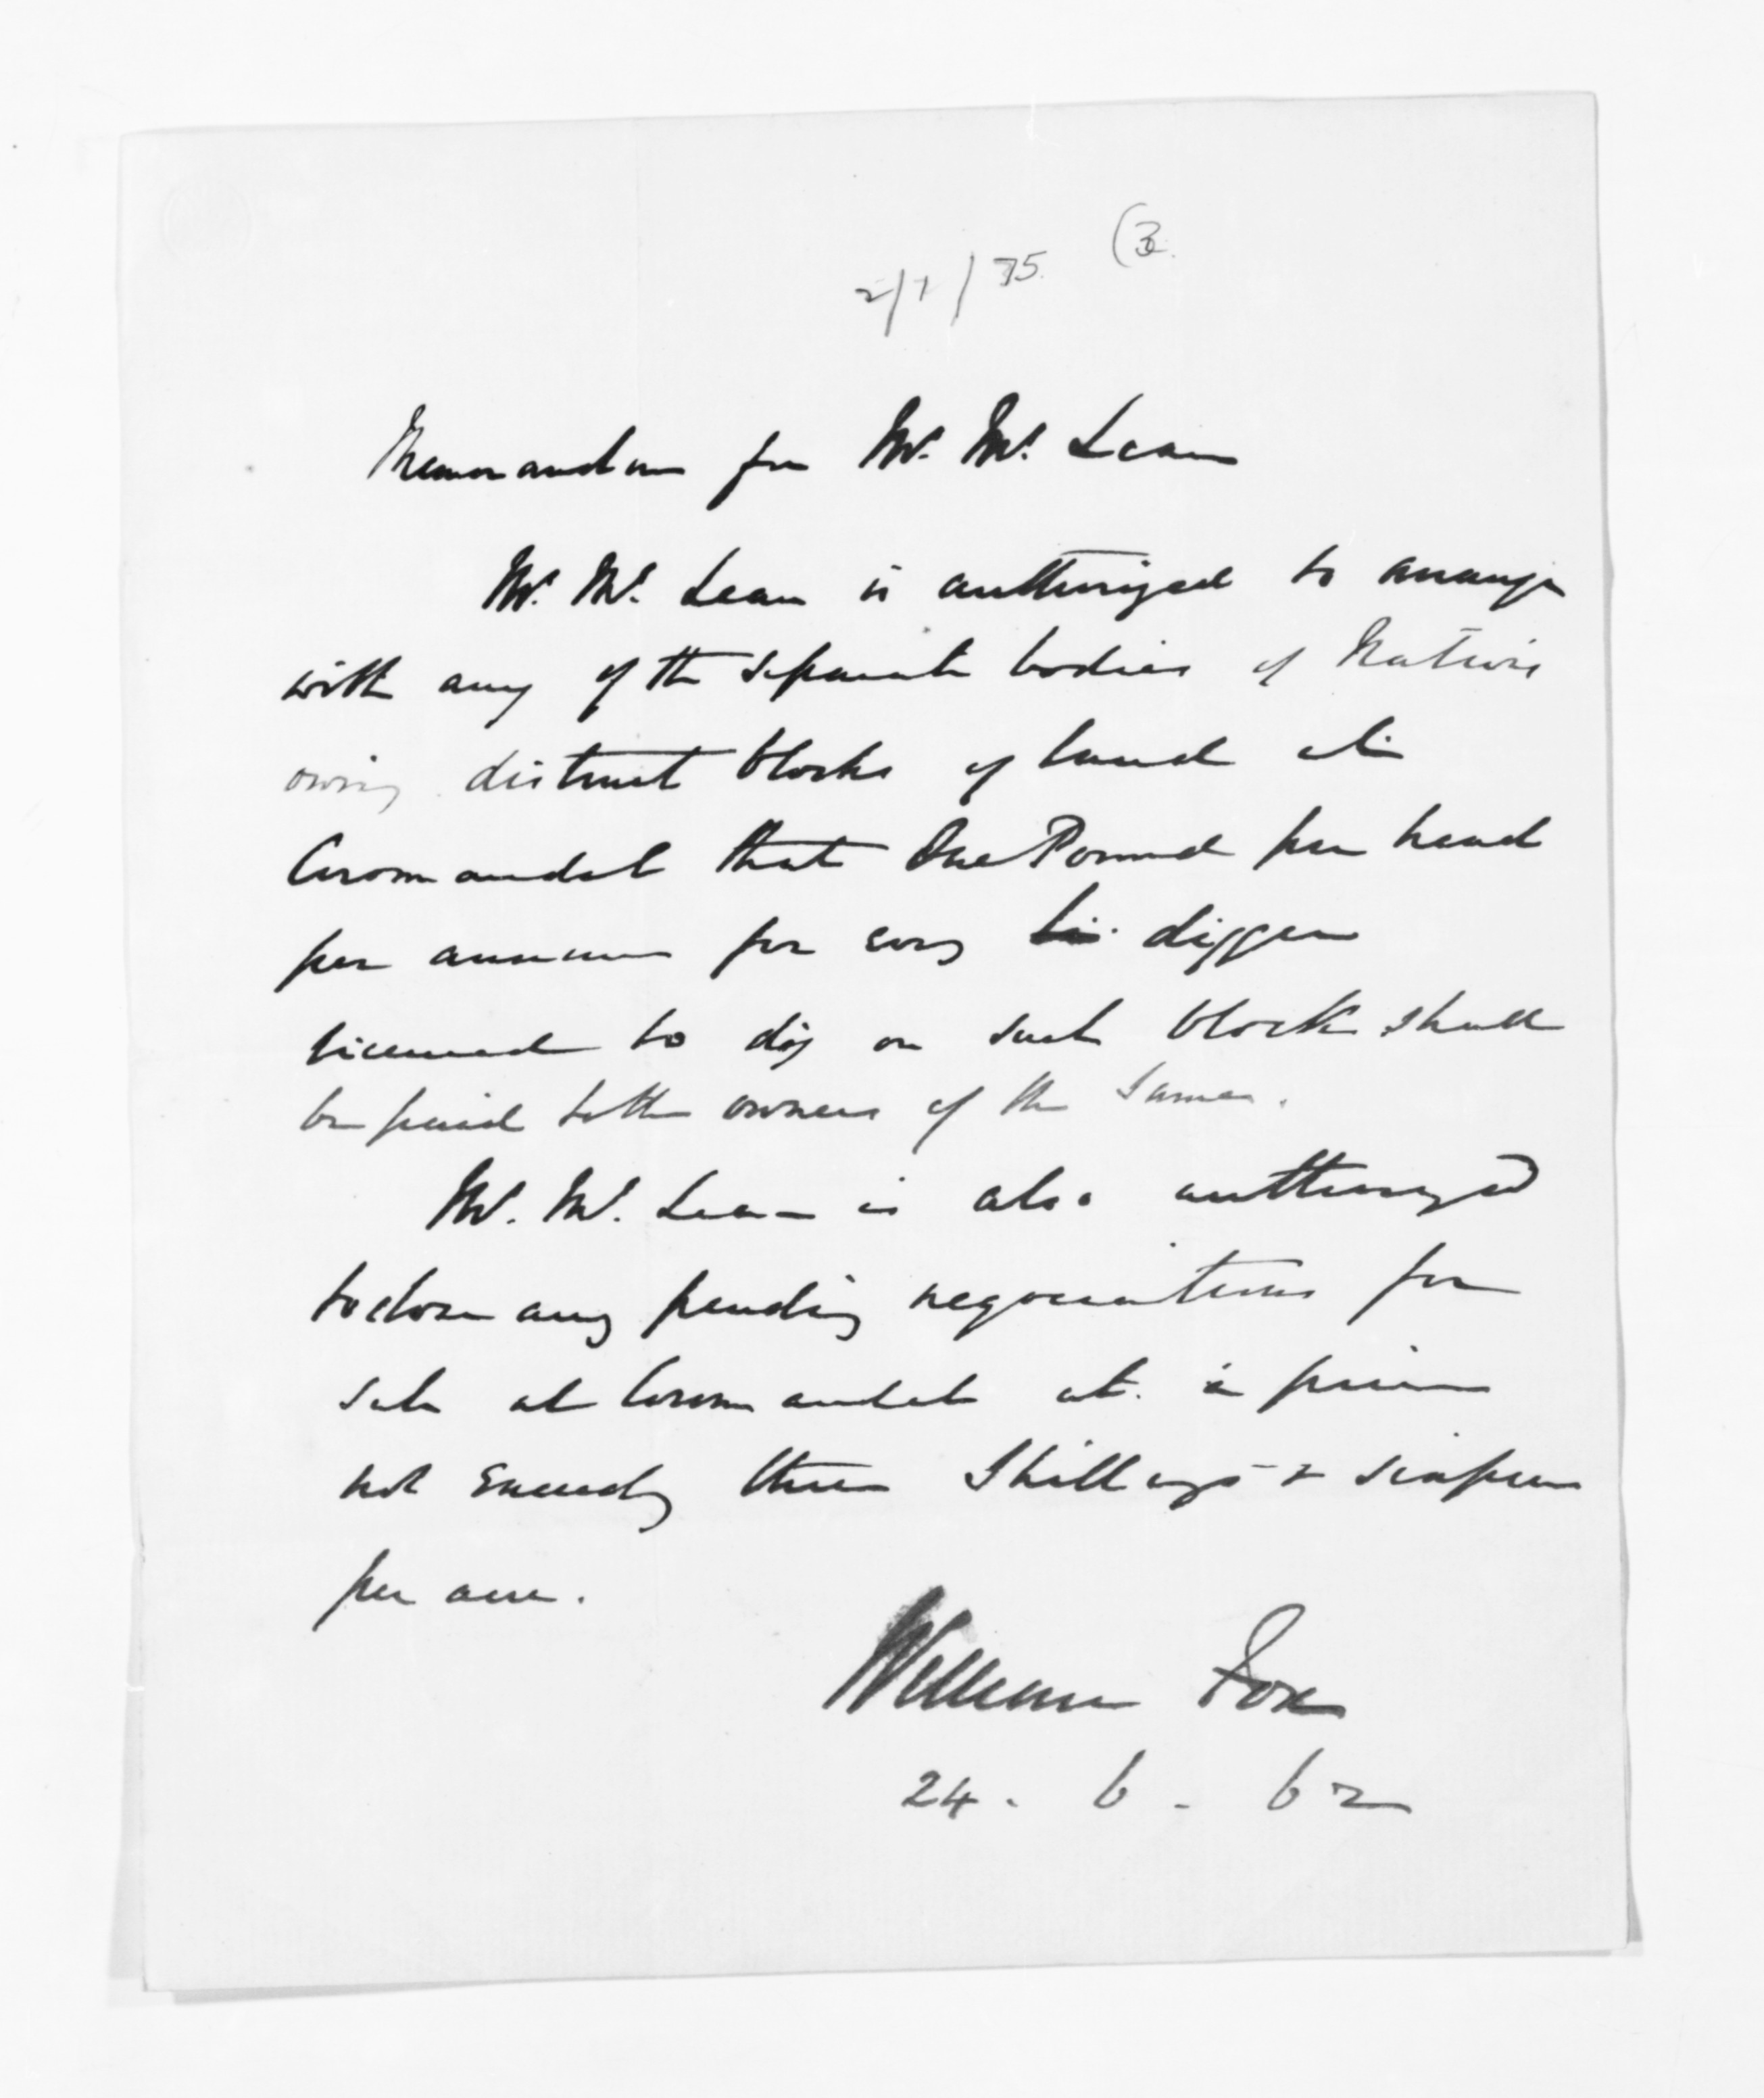 2/1/75. (3.
Memorandum for Mr. Mc. Lean
Mr. Mc. Lean is authorized to arrange
with any of the separate bodies of Natives
owning distinct blocks of land at
Coromandel that One Pound per head
per annum for every digger
licensed to dig on such block shall
be paid to the owners of the same.
Mr. Mc. Lean is also authorized
to close any pending negociations for
sale at Coromandel at a price
not exceeding three Shillings & sixpence
per acre.
William Fox
24 . 6 . 62